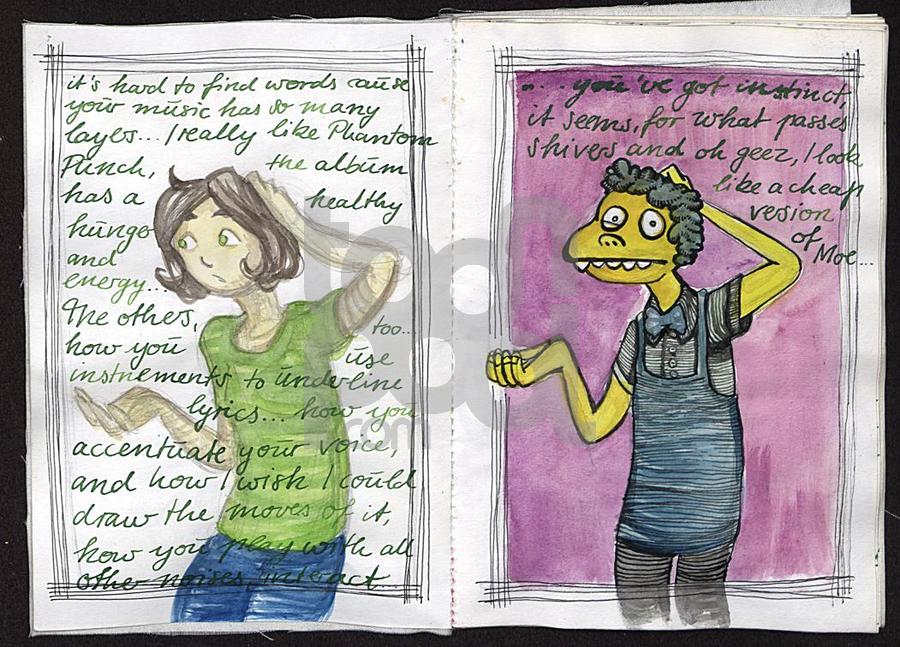 it's hard to find words cause
your music has so many
layers... I really like Phantom
Punch, the album
has a healthy
hunger
and
energy...
The others, too...
how you use
instruements to underline
lyrics... how you
accentuate your voice,
and how I wish I could
draw the moves of it,
how you play with all
other noises, interact
... you've got instinct,
it seems, for what passes
shivers and oh geez, I look
like a cheap
version
of
Moe...